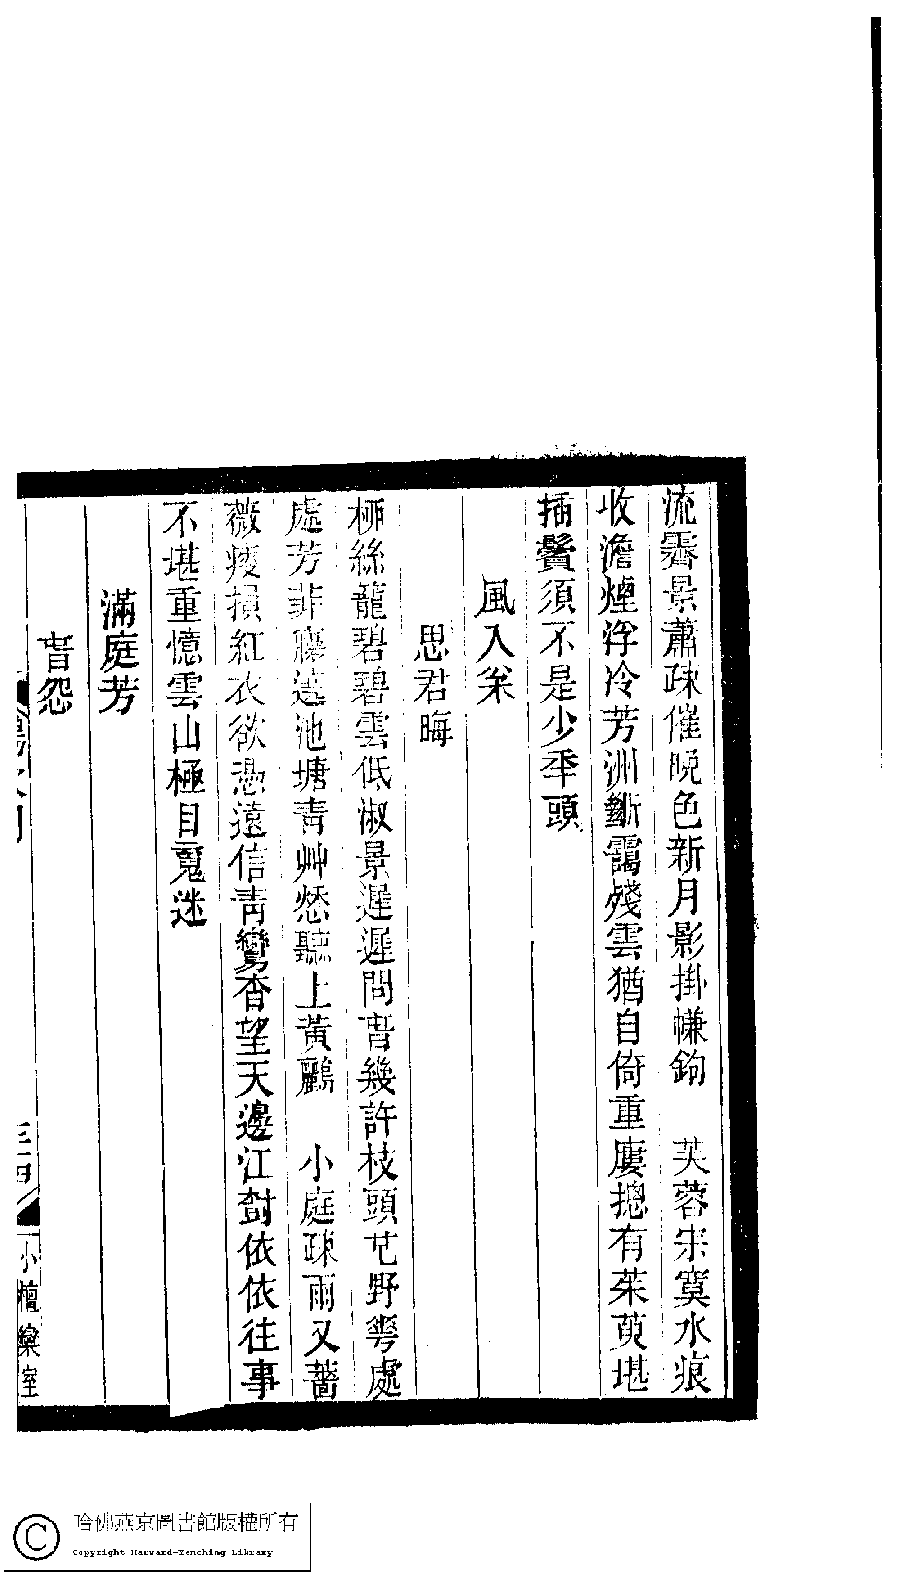 流霽景蕭疎催晚色新月影掛㡘鉤　芙蓉宋寞水痕
收澹煙浮冷芳洲斷靄殘雲猶自倚重廔摠有茱萸堪
插鬢須不是少秊頭
風入枀
思君晦
桺絲龍碧碧雲低淑景遲遲問旾幾許枝頭芚野雩處
處芳菲廉遠池塘青艸愁聽上黃鸝　小庭疎雨又薔
薇瘦損紅衣欲憑遠信青鸞杳望天邊江尌依依往事
不堪重憶雲山極目䰟迷
滿庭芳
旾怨
小檀欒室
哈佛燕京圖書館版權所有
Copyright Harvard-Yenching Library